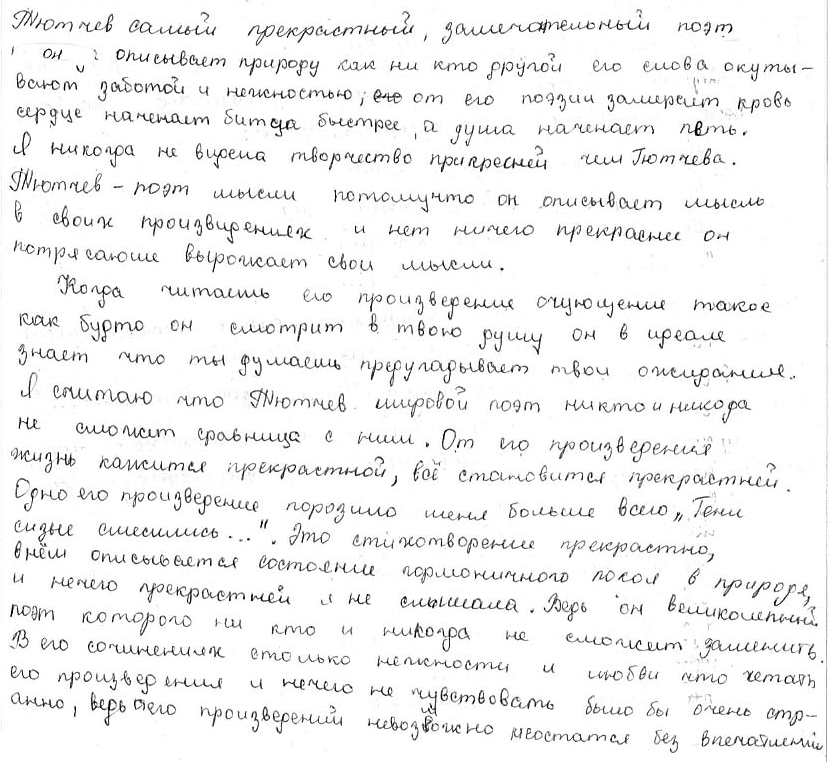 Тютчев самый прекрастный, замечательный поэт
он описывает природу как ни кто другой его слова окуты-
вают заботой и нежностью, его от его поэзии замерает кровь
сердце наченает битца быстрее, а душа наченает петь.
Я никогда не видела творчество прикресней чем Тютчева.
Тютчев - поэт мысли потомучто он описывает мысль
в своих произвидениях и нет ничего прекраснее он
потрясающе выражает свои мысли.
Когда читаешь его произведение ощующение такое
как будто он смотрит в твою душу он в идеале
знает что ты думаешь предугадывает твои ожидания.
Я считаю что Тютчев мировой поэт никто и никода
не сможит сравница с ним. От его произведения
жизнь кажится прекрастной, всё становится прекрастней.
Одно его произведение порозило меня больше всего „Тени
сизые смесились...". Это стихотворение прекрастно,
внём описывается состояние гормоничного покоя в природе,
и нечего прекрастней я не слышала. Ведь он великолепный
поэт которого ни кто и никогда не сможит заменить.
В его сочинениях столько нежности и любви что четать
его произведения и нечего не чувствовать было бы очень стр-
анно, ведь от его произведений невозможно неостатся без впечатлений